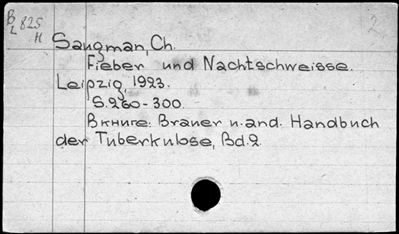 B 825
L H
Saugman, Ch.
Fieber und Nachtschweisse.
Leipzig, 1923.
S. 260-300.
Вкниге: Brauer u. and. Handbuch
der Tuberkulose, Bd. 2.
2